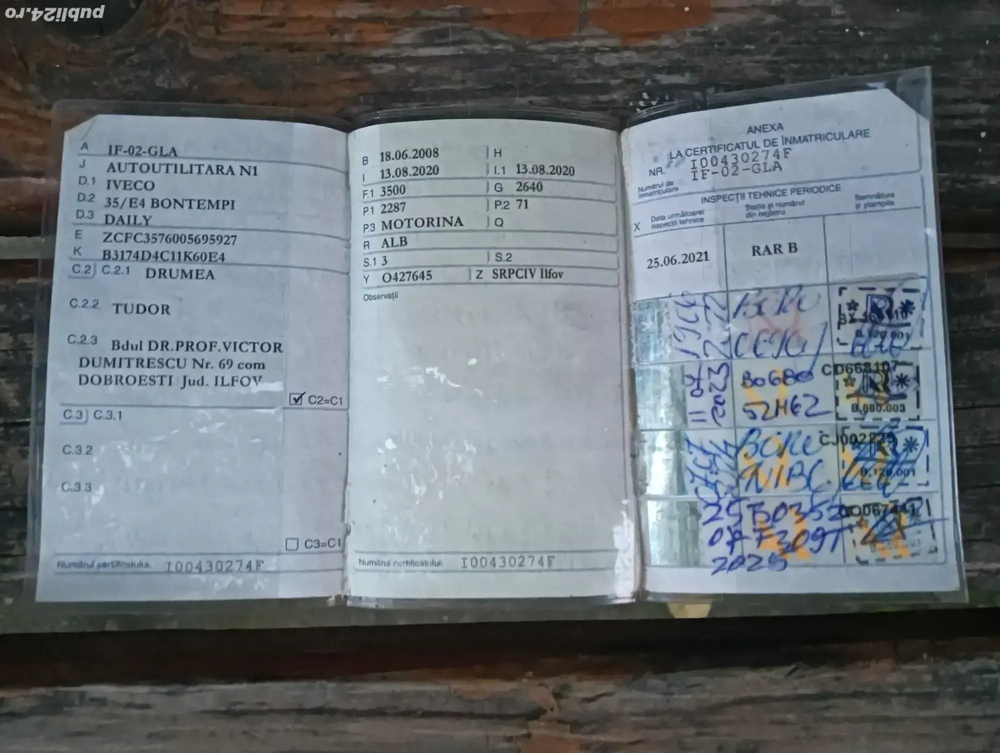 publi24.ro
A IF-02-GLA
J AUTOUTILITARA N1
D.1 IVECO
D.2 35/E4 BONTEMPI
D.3 DAILY
E ZCFC3576005695927
K B3174D4C11K60E4
C.2 C.2.1 DRUMEA
C.2.2 TUDOR
C.2.3 Bdul DR.PROF.VICTOR
DUMITRESCU Nr. 69 com
DOBROESTI Jud. ILFOV
C2=C1
C.3 C.3.1
C.3.2
C.3 3
C3=C1
Numărul certificatului I00430274F
B 18.06.2008 H
I 13.08.2020 I.1 13.08.2020
F.1 3500 G 2640
P.1 2287 P.2 71
P.3 MOTORINA Q
R ALB
S.1 3 S.2
Y O427645 Z SRPCIV Ilfov
Observații
Numărul certificatului I00430274F
ANEXA
LA CERTIFICATUL DE ÎNMATRICULARE
NR. I00430274F
Numărul de înmatriculare IF-02-GLA
INSPECȚII TEHNICE PERIODICE
X Data următoarei inspecții tehnice
Stația și numărul din registru
Semnătura și ștampila
25.06.2021 RAR B
2023
B0680
52462
CD668107
B.680.003
CJ002225
B.120.001
25
B0352
07
F3097
2025